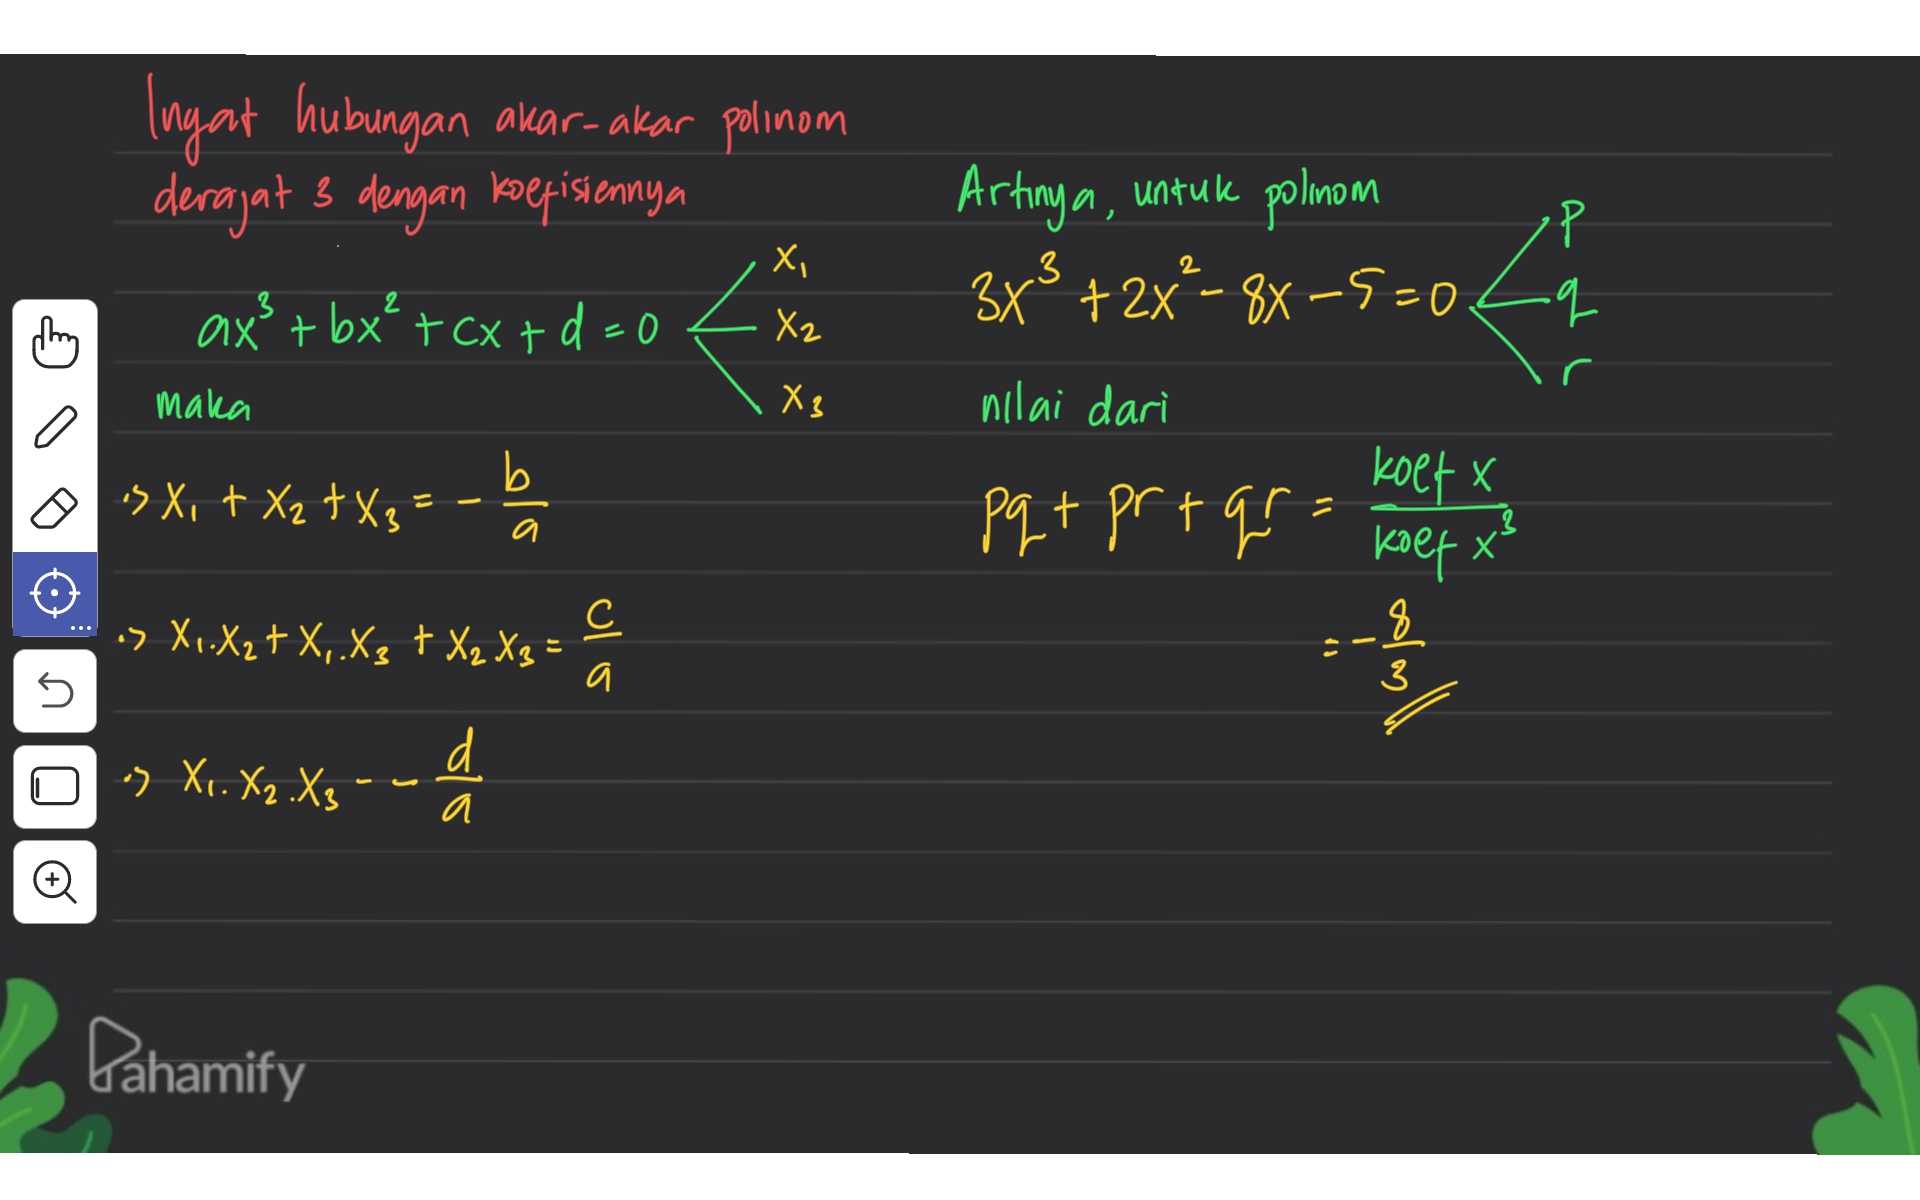 Ingat hubungan akar-akar polinom
derajat 3 dengan koefisiennya
ax³ + bx² + cx + d = 0
x₁
x₂
x₃
maka
•> x₁ + x₂ + x₃ = - b/a
•> x₁.x₂ + x₁.x₃ + x₂ x₃ = c/a
•> x₁.x₂.x₃ = - d/a
Artinya, untuk polinom
3x³ + 2x² - 8x - 5 = 0
p
q
r
nilai dari
pq + pr + qr = koef x / koef x³
= - 8/3
Pahamify